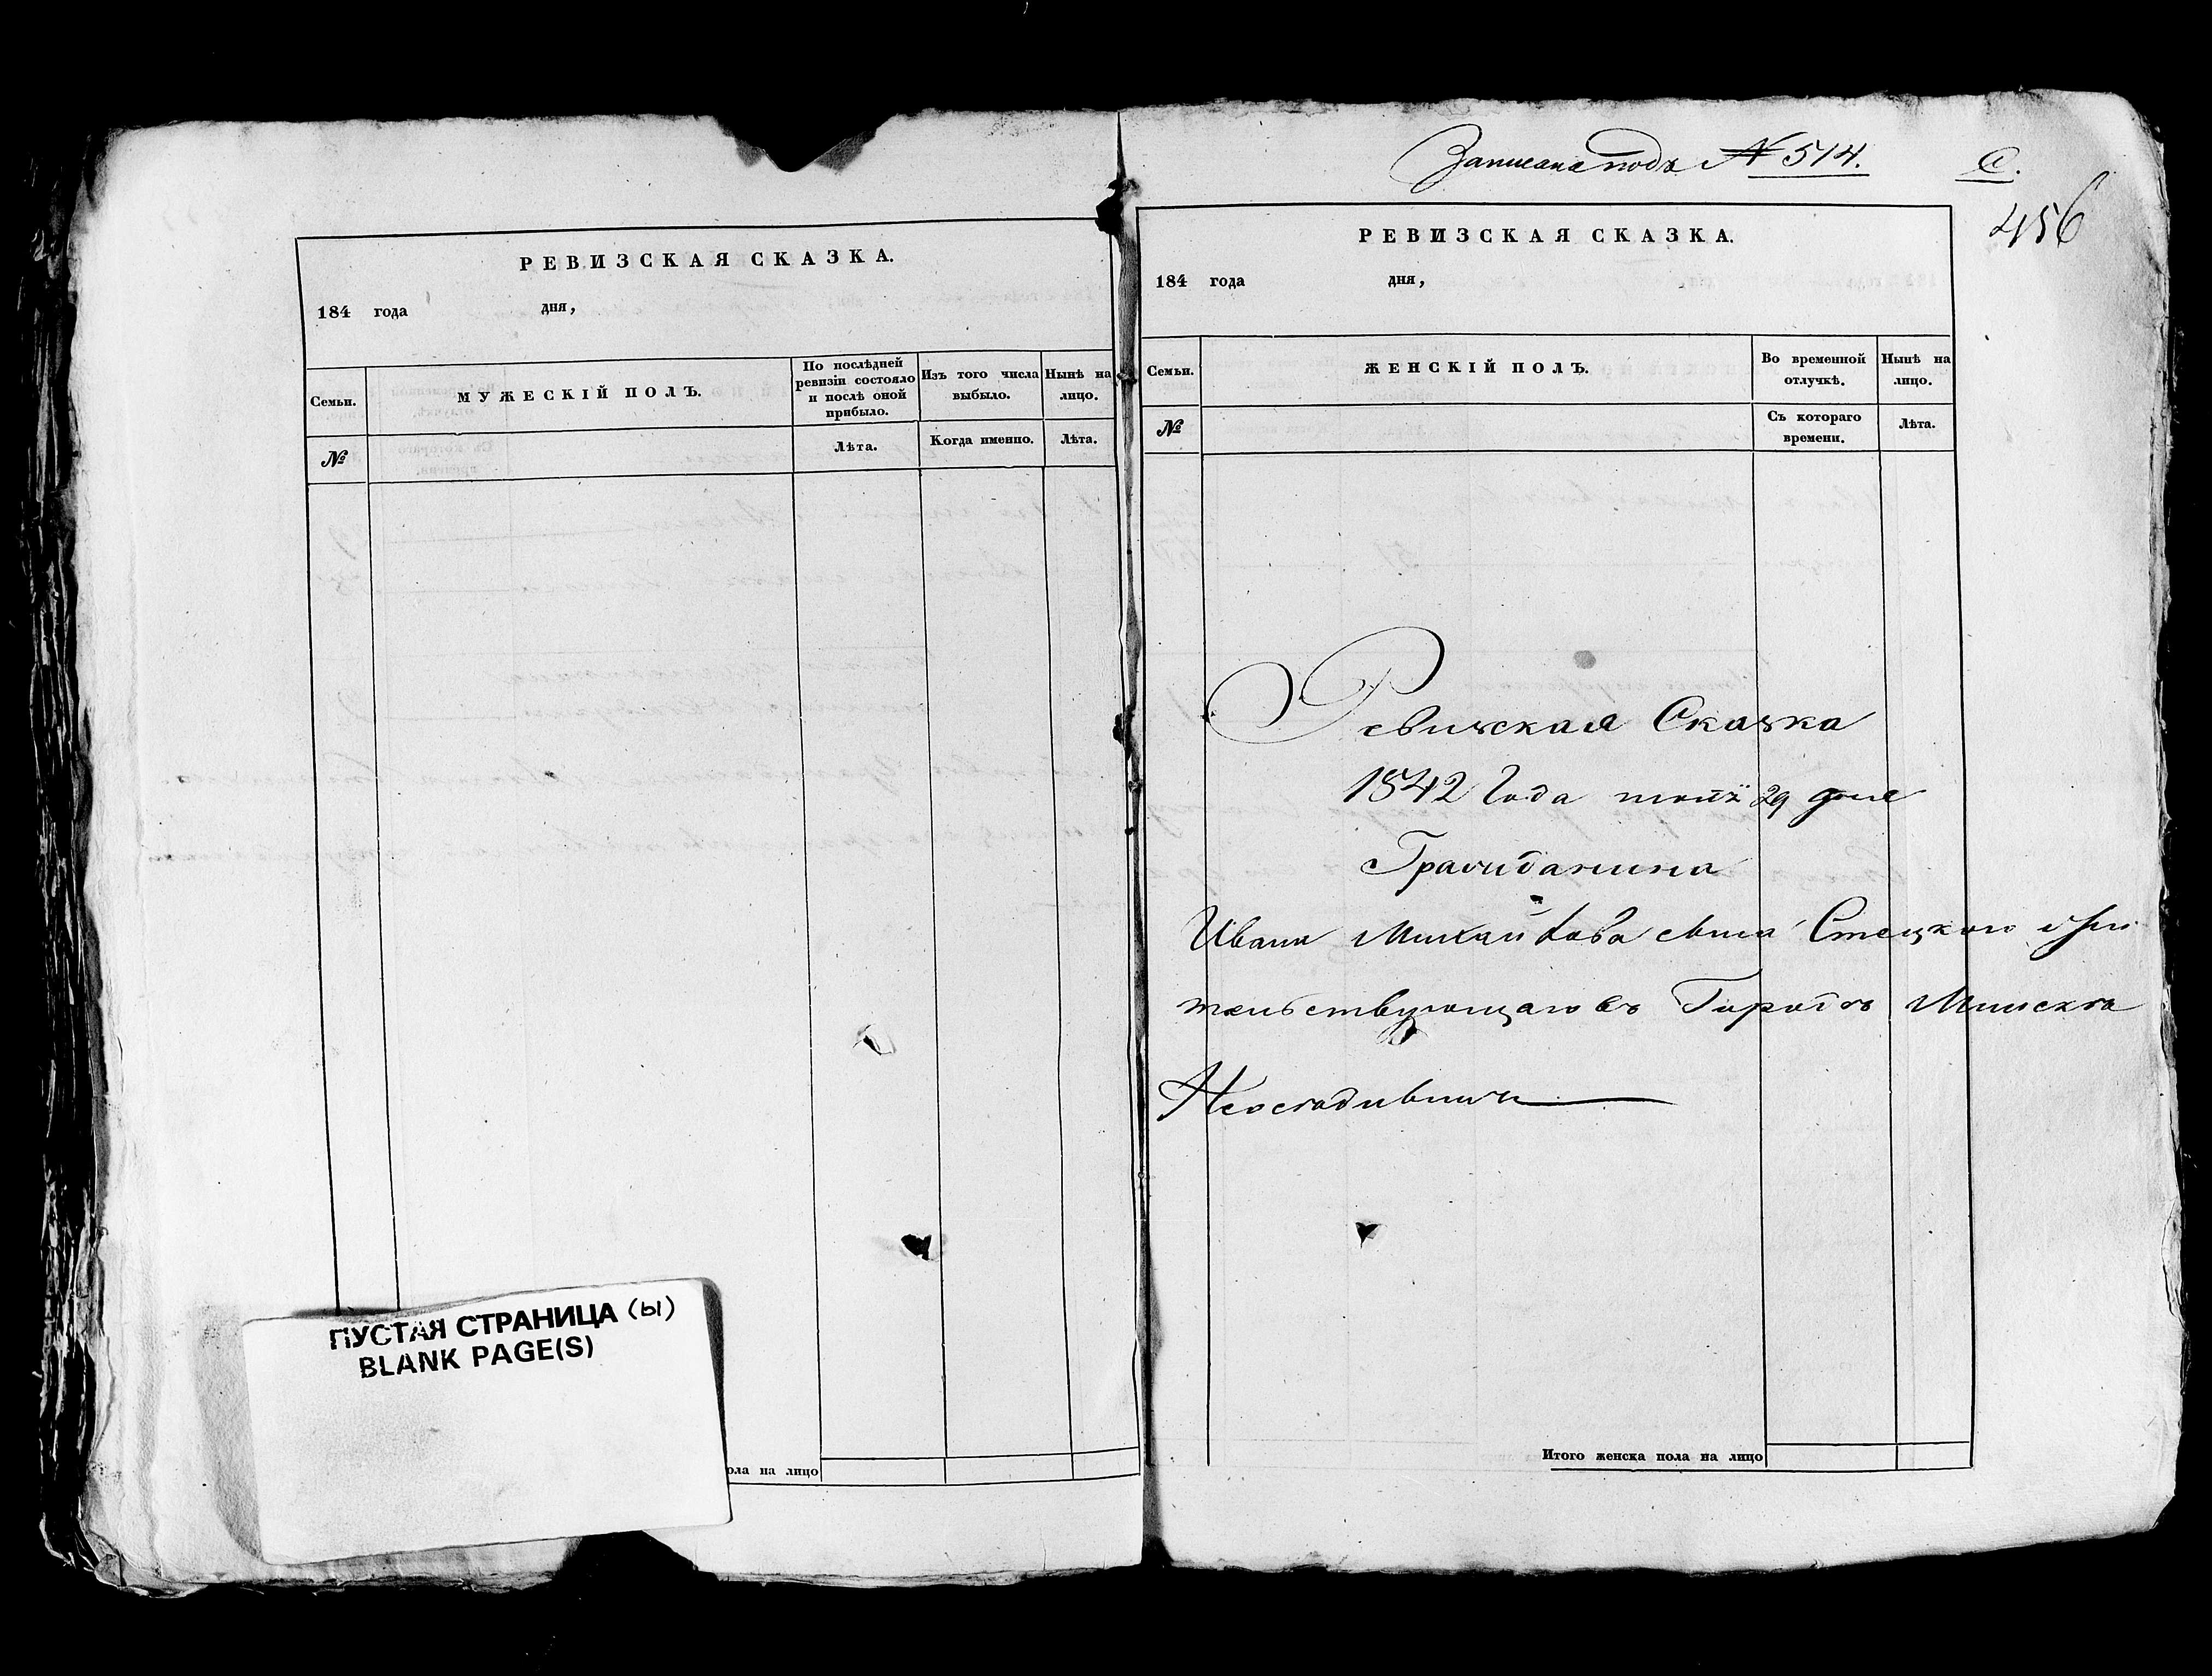 РЕВИЗСКАЯ СКАЗКА.
184 года дня,
Семьи.
МУЖЕСКІЙ ПОЛЪ.
По послѣдней ревизіи состояло и послѣ оной прибыло.
Изъ того числа выбыло.
Нынѣ на лицо.
№
Лѣта.
Когда именно.
Лѣта.
ПУСТАЯ СТРАНИЦА (ы)
BLANK PAGE(S)
ола на лицо
Записана подъ № 514.
С.
456
РЕВИЗСКАЯ СКАЗКА.
184 года дня,
Семьи.
ЖЕНСКІЙ ПОЛЪ.
Во временной отлучкѣ.
Нынѣ на лицо.
№
Съ котораго времени.
Лѣта.
Ревизская Сказка
1842 Года 29 дня
Гражданина
Ивана Михайлова сына Стецкого Жи
тельствующаго въ Городѣ Минскѣ
Итого женска пола на лицо